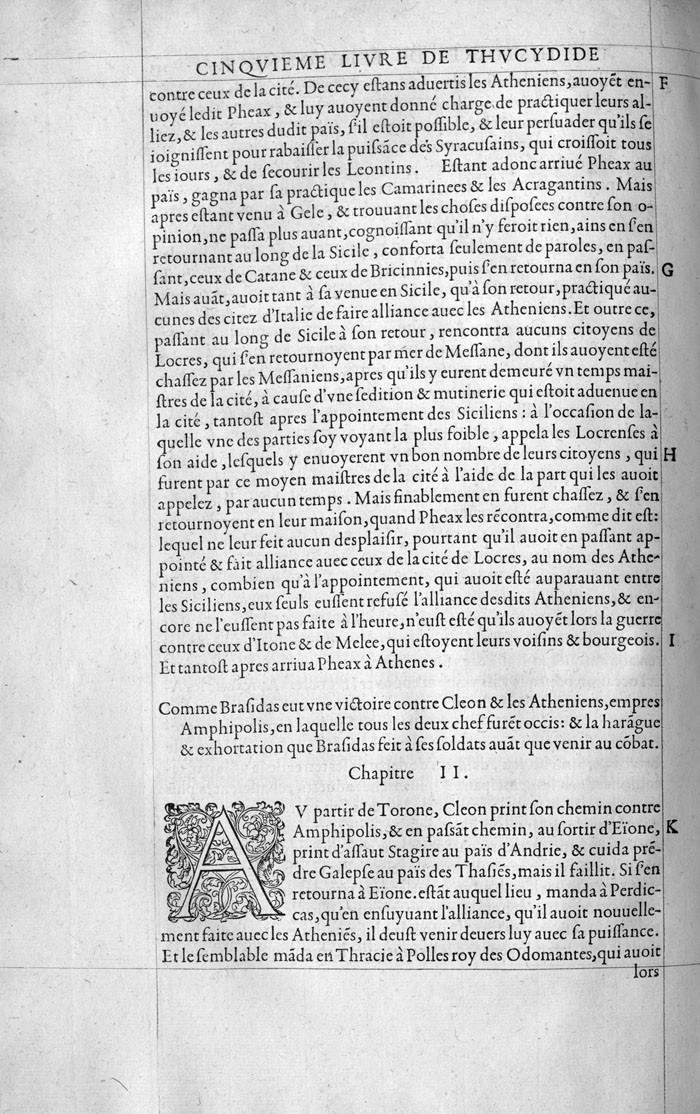 CINQVIEME LIVRE DE THVCYDIDE
contre ceux de la cité. De cecy eſtans aduertis les Atheniens, auoyẽt en- F
uoyé ledit Pheax, & luy auoyent donné charge de practiquer leurs al-
liez, & les autres dudit païs, s'il eſtoit poſſible, & leur perſuader qu'ils ſe
ioigniſſent pour rabaiſſer la puiſsãce des Syracuſains, qui croiſſoit tous
les iours, & de ſecourir les Leontins. Eſtant adonc arriué Pheax au
païs, gagna par ſa practique les Camarinees & les Acragantins. Mais
apres eſtant venu à Gele, & trouuant les choſes diſpoſees contre ſon o-
pinion, ne paſſa plus auant, cognoiſſant qu'il n'y feroit rien, ains en s'en
retournant au long de la Sicile, conforta ſeulement de paroles, en paſ-
ſant, ceux de Catane & ceux de Bricinnies, puis s'en retourna en ſon païs. G
Mais auãt, auoit tant à ſa venue en Sicile, qu'à ſon retour, practiqué au-
cunes des citez d'Italie de faire alliance auec les Atheniens. Et outre ce,
paſſant au long de Sicile à ſon retour, rencontra aucuns citoyens de
Locres, qui s'en retournoyent par mer de Meſſane, dont ils auoyent eſté
chaſſez par les Meſſaniens, apres qu'ils y eurent demeuré vn temps mai-
ſtres de la cité, à cauſe d'vne ſedition & mutinerie qui eſtoit aduenue en
la cité, tantoſt apres l'appointement des Siciliens : à l'occaſion de la-
quelle vne des parties ſoy voyant la plus foible, appela les Locrenſes à
ſon aide, leſquels y enuoyerent vn bon nombre de leurs citoyens, qui H
furent par ce moyen maiſtres de la cité à l'aide de la part qui les auoit
appelez, par aucun temps. Mais finablement en furent chaſſez, & s'en
retournoyent en leur maiſon, quand Pheax les rẽcontra, comme dit eſt:
lequel ne leur feit aucun desplaiſir, pourtant qu'il auoit en paſſant ap-
pointé & fait alliance auec ceux de la cité de Locres, au nom des Athe-
niens, combien qu'à l'appointement, qui auoit eſté auparauant entre
les Siciliens, eux ſeuls euſſent refuſé l'alliance desdits Atheniens, & en-
core ne l'euſſent pas faite à l'heure, n'euſt eſté qu'ils auoyẽt lors la guerre
contre ceux d'Itone & de Melee, qui eſtoyent leurs voiſins & bourgeois. I
Et tantoſt apres arriua Pheax à Athenes.
Comme Braſidas eut vne victoire contre Cleon & les Atheniens, empres
Amphipolis, en laquelle tous les deux chef furẽt occis: & la harãgue
& exhortation que Braſidas feit à ſes ſoldats auãt que venir au cõbat.
Chapitre II.
AV partir de Torone, Cleon print ſon chemin contre
Amphipolis, & en paſsãt chemin, au ſortir d'Eïone, K
print d'aſſaut Stagire au païs d'Andrie, & cuida prẽ-
dre Galepſe au païs des Thaſiẽs, mais il faillit. Si s'en
retourna à Eïone. eſtãt auquel lieu, manda à Perdic-
cas, qu'en enſuyuant l'alliance, qu'il auoit nouuelle-
ment faite auec les Atheniẽs, il deuſt venir deuers luy auec ſa puiſſance.
Et le ſemblable mãda en Thracie à Polles roy des Odomantes, qui auoit
lors